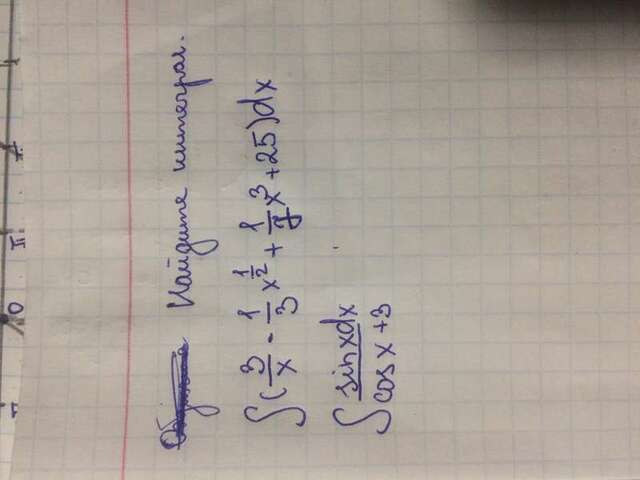 π 0 π
Найдите интеграл.
∫(3/x - 1/3 x^(1/2) + 1/7 x^3 + 25)dx
∫ sinxdx / cosx + 3